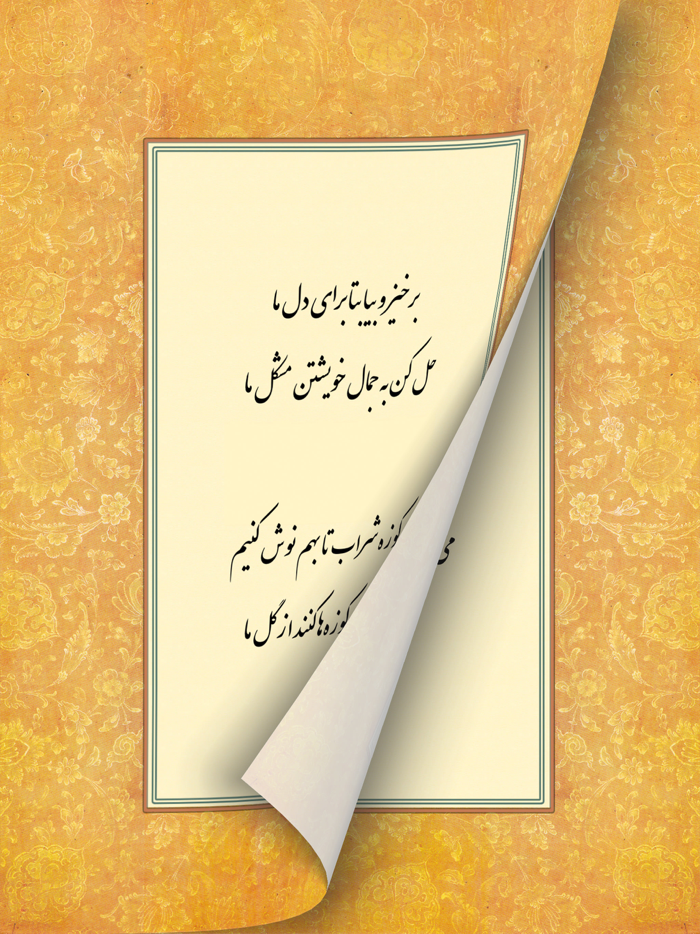 برخیز و بیا بتا برای دل ما
حل کن به جمال خویشتن مشکل ما
کوزه شراب تا بهم نوش کنیم
کوزه‌ها کنند از گل ما